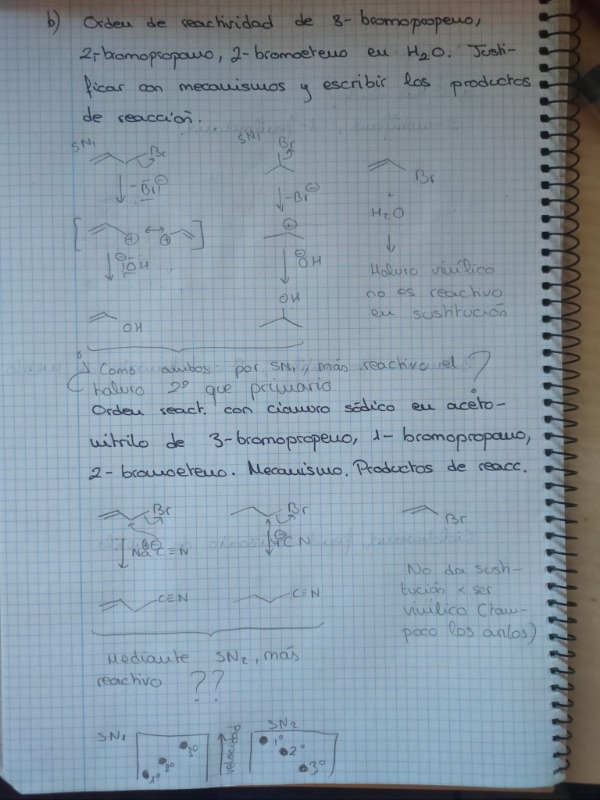 b) Orden de reactividad de 3-bromopropeno,
2-bromopropano, 2-bromoeteno en H2O. Justi-
ficar con mecanismos y escribir los productos
de reacción.
SN1 SN1
Br Br Br
-Br⊖ -Br⊖
H2O
[ ⊕ ↔ ⊕ ] ⊕
⊖OH ⊖OH
Haluro vinílico
no es reactivo
en sustitución
OH OH
Como ambos por SN1, más reactivo el ?
haluro 2º que primario
Orden react. con cianuro sódico en aceto-
nitrilo de 3-bromopropeno, 1-bromopropano,
2-bromoeteno. Mecanismo. Productos de reacc.
Br Br Br
Na⊕ ⊖C≡N ⊖CN
No da susti-
tución x ser
vinílico (tam-
poco los arilos)
C≡N C≡N
Mediante SN2, más
reactivo ??
SN1 velocidad SN2
3º 2º 1º
1º 2º 3º